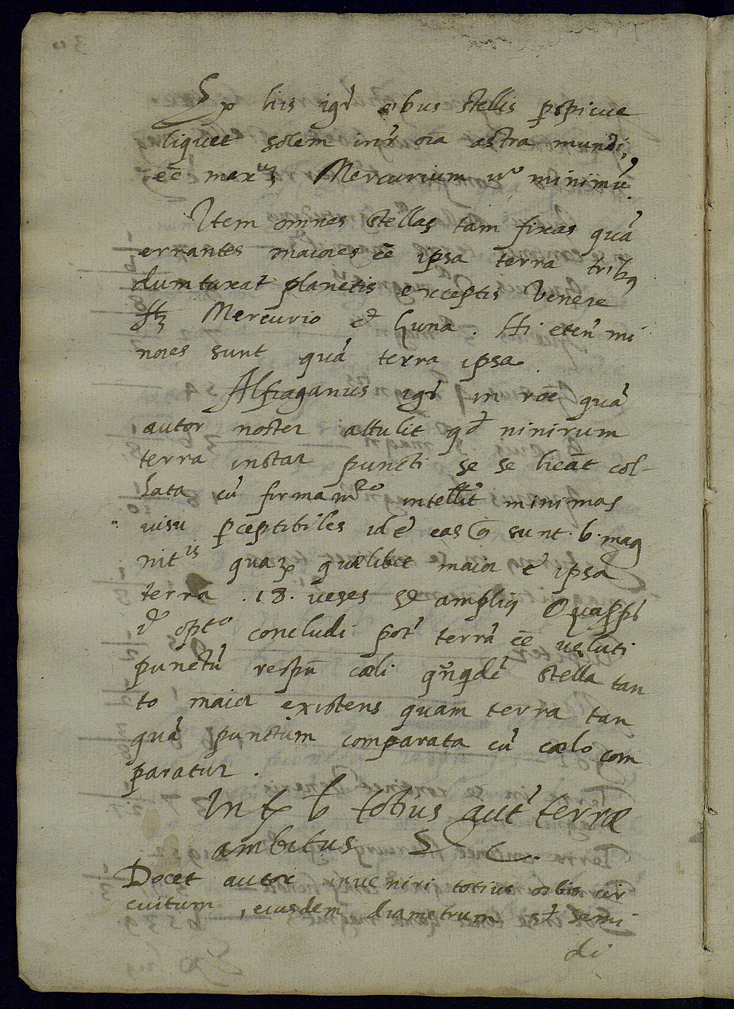 Ex his igr̃ oĩbus stellis p̱spicue
liquet solem int̃ oĩa astra mundi,
eẽ max Mercurium ũo minimũ.
Item omnes stellas tam fixas quã
errantes maiores eẽ ipsa terra tribꝯ
dumtaxat planetis exceptis Venere
Mercurio et Luna. Hi etenĩ mi
nores sunt quã terra ipsa.
Alfraganus igr̃ in rõe quã
autor noster attulit qd̃ nimirum
terra instar puncti se se heãt col-
lata cũ firmamto intellit minimas
visu p̱ceptibiles id ẽ eas sunt 6. mag
nitis quaꝝ quælibet maior ẽ ipsa
terra .18. vezes et ampliꝯ
opto concludi pot̃ terrã eẽ veluti
punctũ respũ cæli stella tan
to maior existens quam terra tan
quã punctum comparata cũ cælo com
paratur.
totius aut̃ terræ
ambitus &c.
Docet autor inueniri totius orbis cir
cuitum, eiusdem diametrum et semi
di